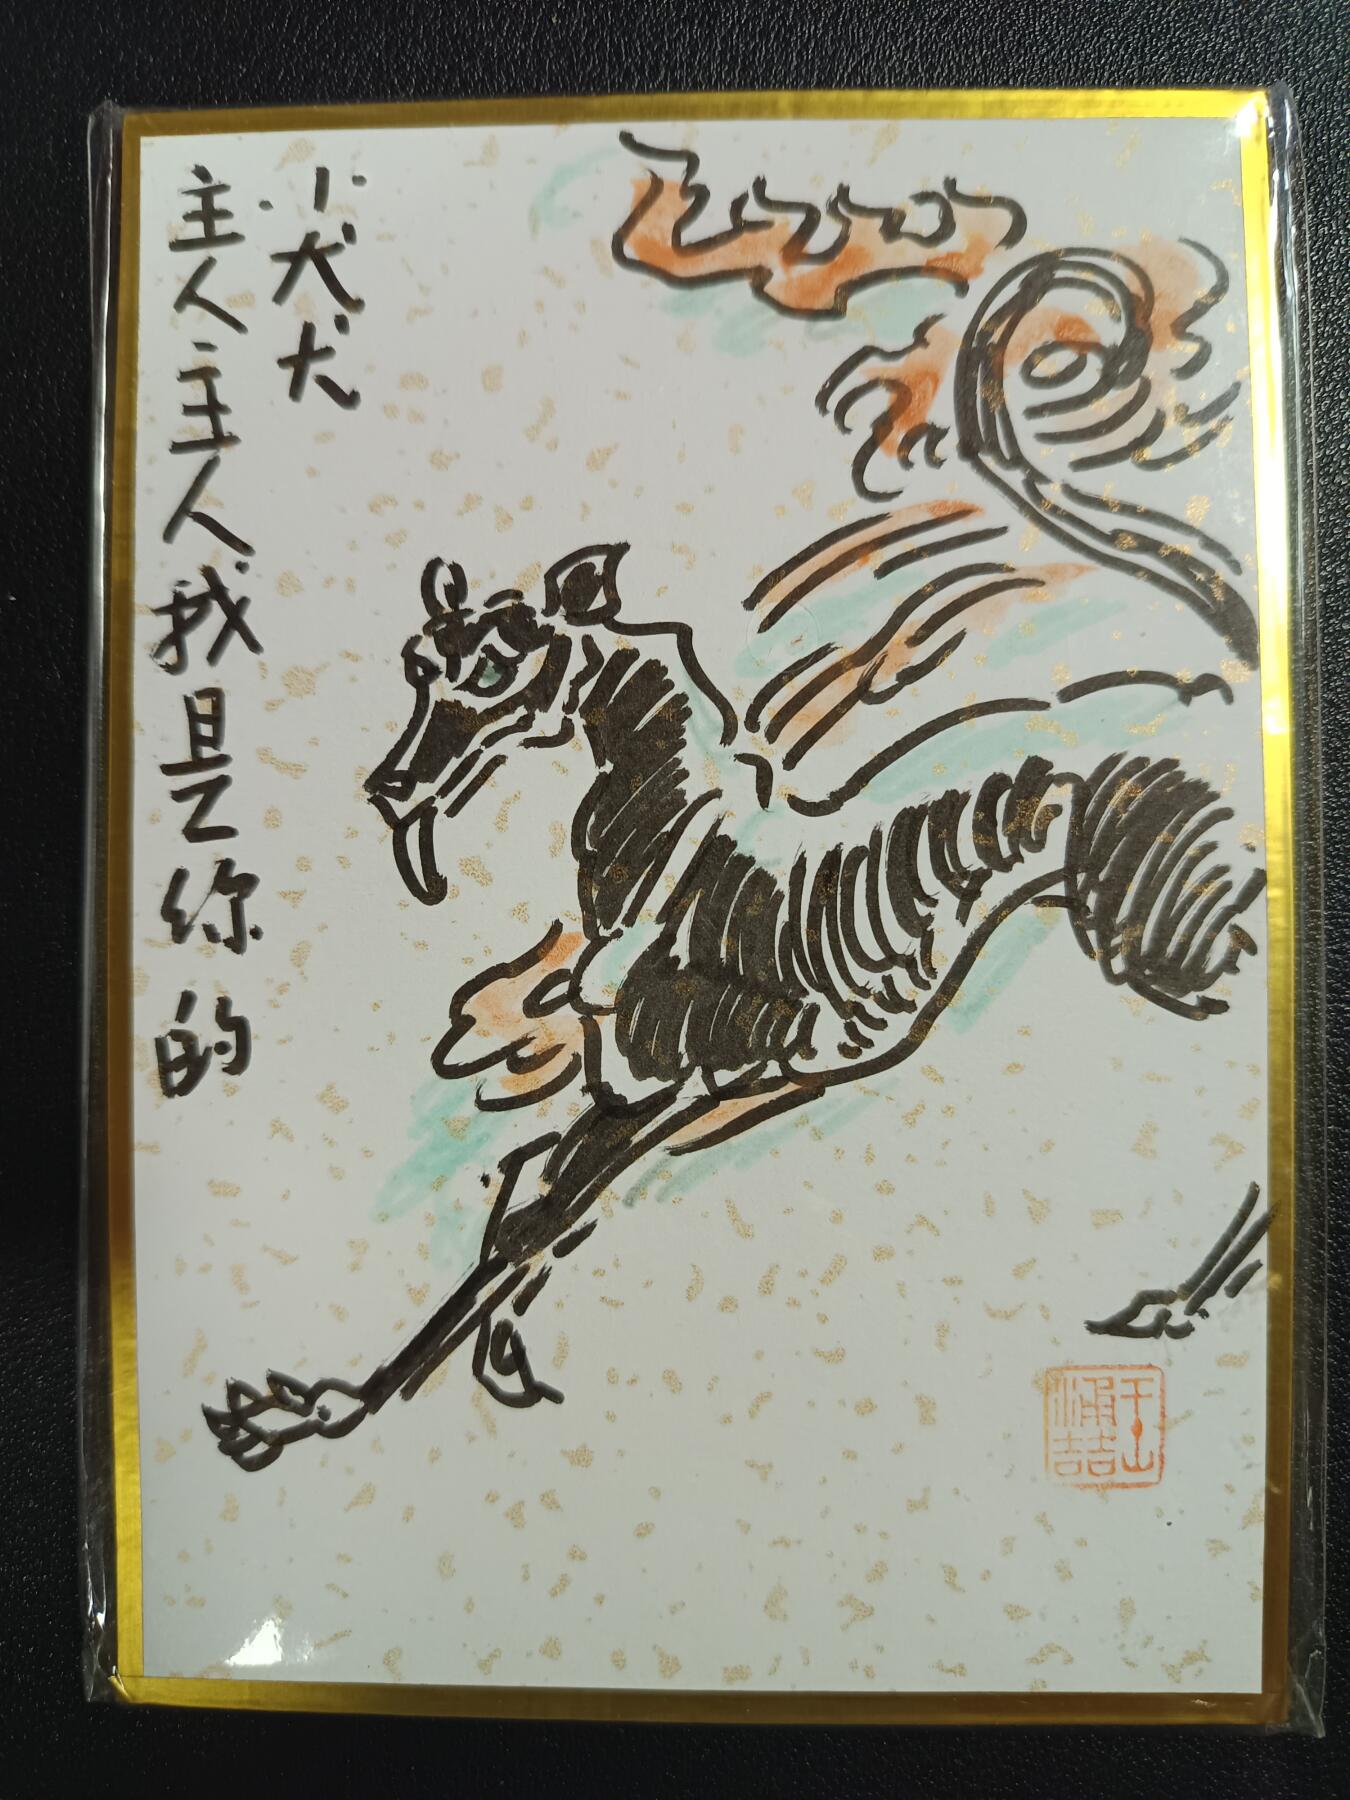 主人主人我是你的
小犬犬
千山
涌喆